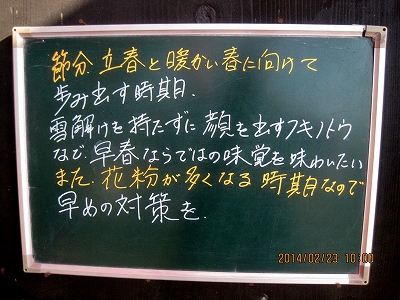 節分、立春と暖かい春に向けて
歩み出す時期.
雪解けを持たずに顔を出すフキノトウ
など、早春ならではの味覚を味わいたい
また、花粉が多くなる時期なので
早めの対策を.
2014/02/23 10:01